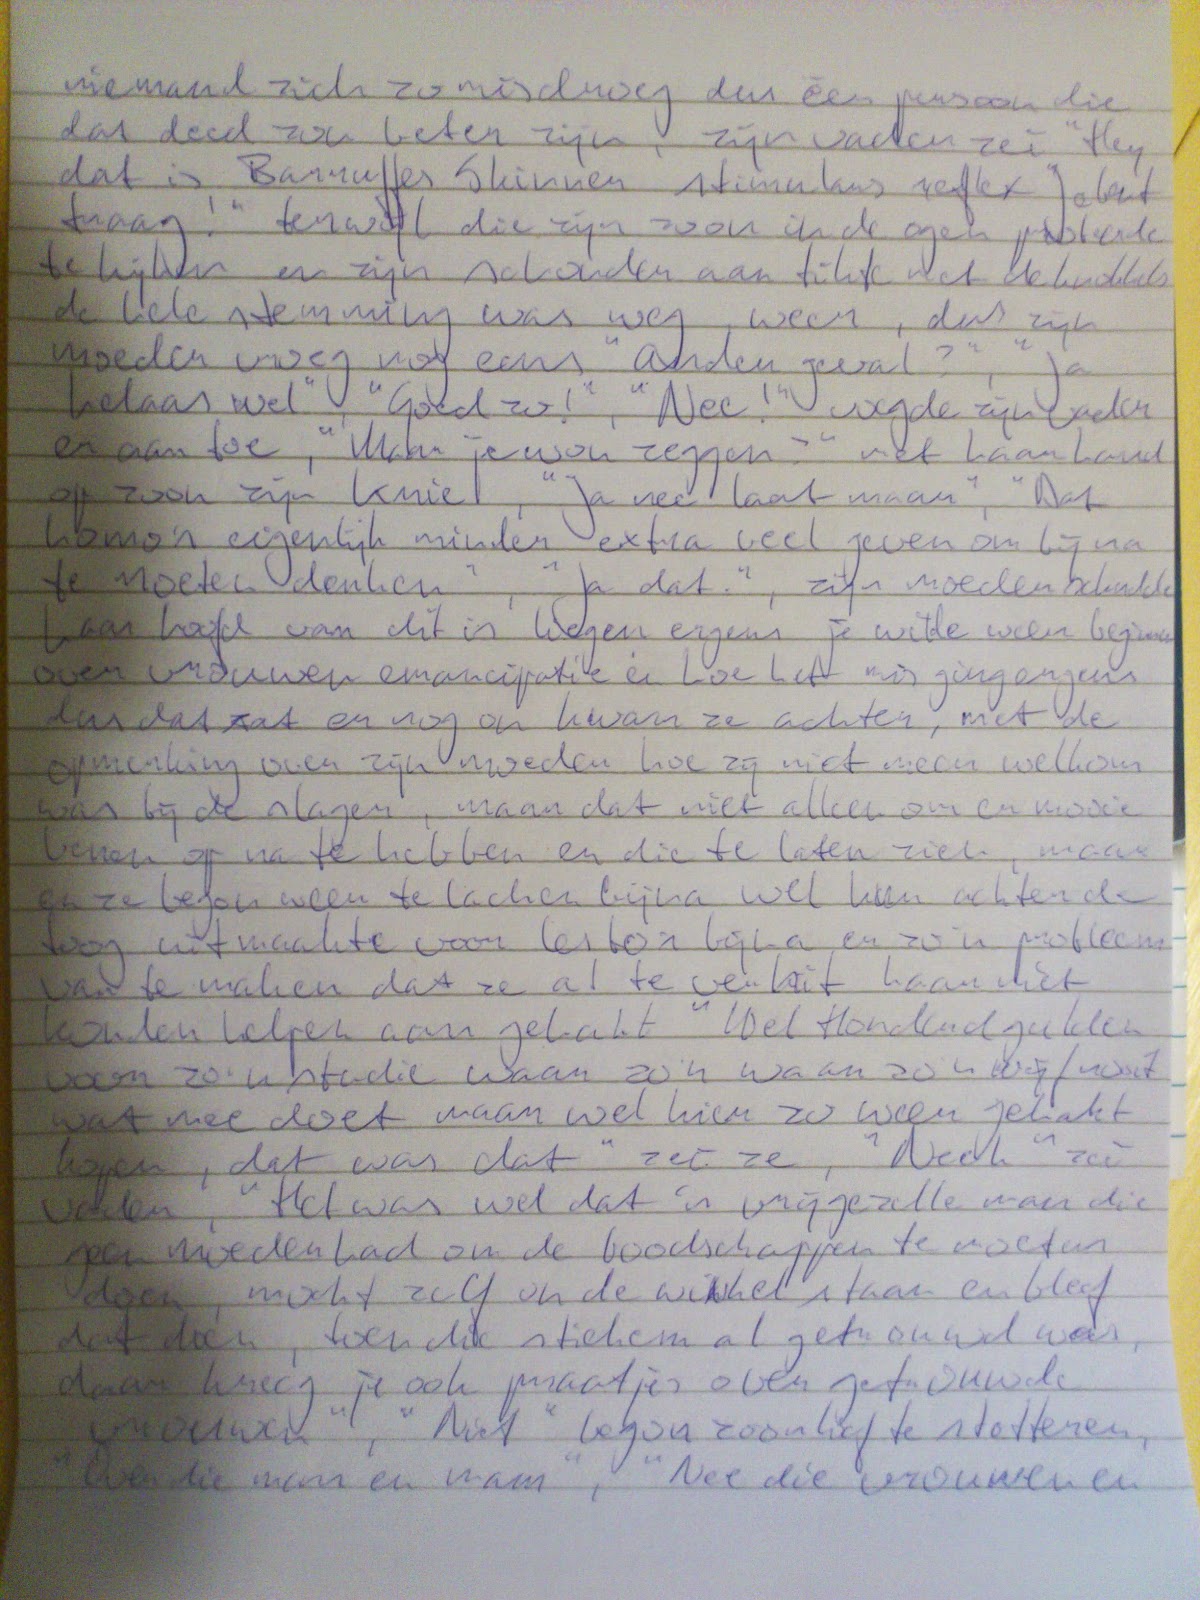 niemand zich zo misdroeg dus één persoon die
dat deed zou beter zijn, zijn vader zei "Hey
dat is Skinner stimulans reflex je bent
traag!" terwijl die zijn zoon in de ogen probeerde
te kijken en zijn schouder aan tikte met de knokkels
de hele stemming was weg, weer, dus zijn
moeder vroeg nog eens "Ander geval?", "Ja
helaas wel", "Goed zo!", "Nee!" voegde zijn vader
er aan toe, "Maar je wou zeggen?" met haar hand
op zoon zijn knie, "Ja nee laat maar", "Dat
homo's eigenlijk minder extra veel geven om bij na
te moeten denken", "Ja dat.", zijn moeder schudde
haar hoofd van dit is liegen ergens je wilde weer beginnen
over vrouwen emancipatie en hoe het mis ging ergens
dus dat zat er nog on kwam ze achter, met de
opmerking over zijn moeder hoe zij niet meer welkom
was bij de slager, maar dat niet alleen om er mooie
benen op na te hebben en die te laten zien, maar
en ze begon weer te lachen bijna wel hun achter de
toog uitmaakte voor lesbo's bijna en zo'n probleem
van te maken dat ze al te verhit haar niet
konden helpen aan gehakt "Wel Honderd gulden
voor zo'n studie waar zo'n waar zo'n wijf nooit
wat mee doet maar wel hier zo weer gehakt
kopen, dat was dat" zei ze, "Neeh" zei
vader, "Het was wel dat 'n vrijgezelle man die
geen moeder had om de boodschappen te moeten
doen, mocht zelf in de winkel staan en bleef
dat doen, toen die stiekem al getrouwd was,
daar kreeg je ook praatjes over getrouwde
vrouwen", "Niet" begon zoonlief te stotteren,
"Over die man en mam", "Nee die vrouwen en